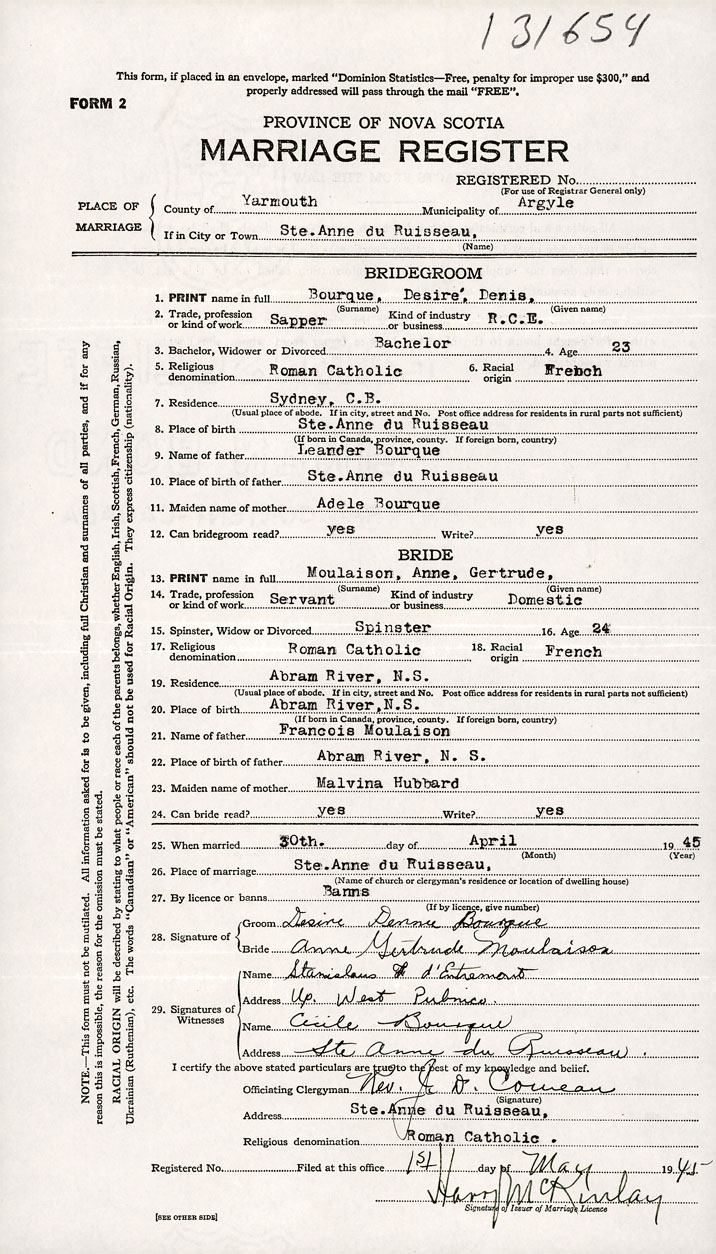 131654
This form, if placed in an envelope, marked "Dominion Statistics—Free, penalty for improper use $300," and
properly addressed will pass through the mail "FREE".
FORM 2
PROVINCE OF NOVA SCOTIA
MARRIAGE REGISTER
REGISTERED No.
(For use of Registrar General only)
PLACE OF MARRIAGE
County of Yarmouth Municipality of Argyle
If in City or Town Ste.Anne du Ruisseau,
(Name)
BRIDEGROOM
1. PRINT name in full Bourque, Desire', Denis,
(Surname) (Given name)
2. Trade, profession or kind of work Sapper Kind of industry or business R.C.E.
3. Bachelor, Widower or Divorced Bachelor 4. Age 23
5. Religious denomination Roman Catholic 6. Racial origin French
7. Residence Sydney, C.B.
(Usual place of abode. If in city, street and No. Post office address for residents in rural parts not sufficient)
8. Place of birth Ste.Anne du Ruisseau
(If born in Canada, province, county. If foreign born, country)
9. Name of father Leander Bourque
10. Place of birth of father Ste.Anne du Ruisseau
11. Maiden name of mother Adele Bourque
12. Can bridegroom read? yes Write? yes
BRIDE
13. PRINT name in full Moulaison, Anne, Gertrude,
(Surname) (Given name)
14. Trade, profession or kind of work Servant Kind of industry or business Domestic
15. Spinster, Widow or Divorced Spinster 16. Age 24
17. Religious denomination Roman Catholic 18. Racial origin French
19. Residence Abram River, N.S.
(Usual place of abode. If in city, street and No. Post office address for residents in rural parts not sufficient)
20. Place of birth Abram River,N.S.
(If born in Canada, province, county. If foreign born, country)
21. Name of father Francois Moulaison
22. Place of birth of father Abram River, N. S.
23. Maiden name of mother Malvina Hubbard
24. Can bride read? yes Write? yes
25. When married 30th. day of April 19 45
(Month) (Year)
26. Place of marriage Ste.Anne du Ruisseau,
(Name of church or clergyman's residence or location of dwelling house)
27. By licence or banns Banns
(If by licence, give number)
28. Signature of
Groom Desire Bourque
Bride Anne Gertrude Moulaison
29. Signatures of Witnesses
Name Stanislaus d'Entremont
Address Up. West Pubnico.
Name Cécile Bourque
Address Ste Anne du Ruisseau.
I certify the above stated particulars are true to the best of my knowledge and belief.
Officiating Clergyman Rev. D. Comeau
(Signature)
Address Ste.Anne du Ruisseau,
Religious denomination Roman Catholic .
Registered No. Filed at this office 1st day of May 1945
Harry McKinlay
Signature of Issuer of Marriage Licence
[SEE OTHER SIDE]
NOTE.—This form must not be mutilated. All information asked for is to be given, including full Christian and surnames of all parties, and if for any
reason this is impossible, the reason for the omission must be stated.
RACIAL ORIGIN will be described by stating to what people or race each of the parents belongs, whether English, Irish, Scottish, French, German, Russian,
Ukrainian (Ruthenian), etc. The words "Canadian" or "American" should not be used for Racial Origin. They express citizenship (nationality).